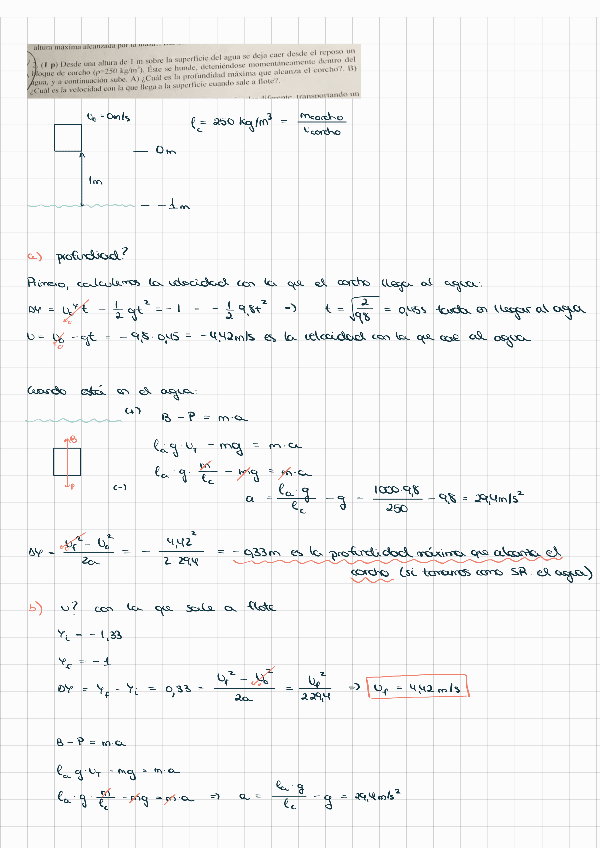 altura máxima alcanzada por la
(1 p) Desde una altura de 1 m sobre la superficie del agua se deja caer desde el reposo un
bloque de corcho (ρ=250 kg/m³). Éste se hunde, deteniéndose momentáneamente dentro del
agua, y a continuación sube. A) ¿Cuál es la profundidad máxima que alcanza el corcho?. B)
¿Cuál es la velocidad con la que llega a la superficie cuando sale a flote?.
diferente transportando un
v₀ = 0m/s
ρc = 250 kg/m³ = mcorcho / Vcorcho
0m
1m
-1m
a) profundidad?
Primero, calculemos la velocidad con la que el corcho llega al agua:
ΔY = v₀ᵧt - 1/2 gt² = -1 = -1/2 9,8t² => t = √(2/9,8) = 0,45s tarda en llegar al agua
v = v₀ - gt = -9,8·0,45 = -4,42m/s es la velocidad con la que cae al agua.
Cuando está en el agua:
(+)
B - P = m·a
B
ρa·g·VT - mg = m·a
ρa·g·m/ρc - mg = m·a
P
(-)
a = ρa·g/ρc - g = 1000·9,8/250 - 9,8 = 29,4m/s²
ΔY = (vf² - v₀²)/2a = - 4,42²/2·29,4 = -0,33m es la profundidad máxima que alcanza el
corcho (si tomamos como SR el agua)
b) v? con la que sale a flote
Yi = -1,33
Yf = -1
ΔY = Yf - Yi = 0,33 = (vf² - v₀²)/2a = vf²/2·29,4 => vf = 4,42 m/s
B - P = m·a
ρa·g·VT - mg = m·a
ρa·g·m/ρc - mg = m·a => a = ρa·g/ρc - g = 29,4m/s²